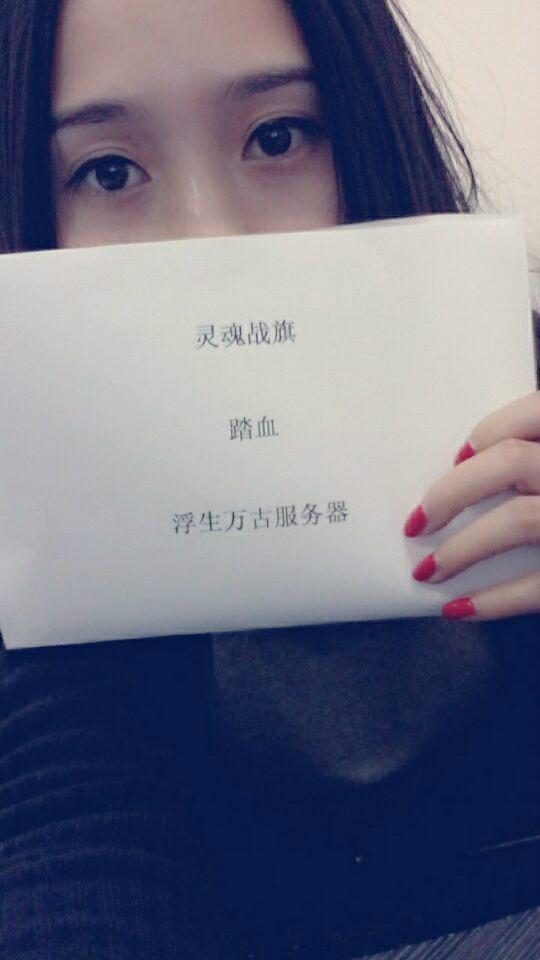 灵魂战旗
踏血
浮生万古服务器